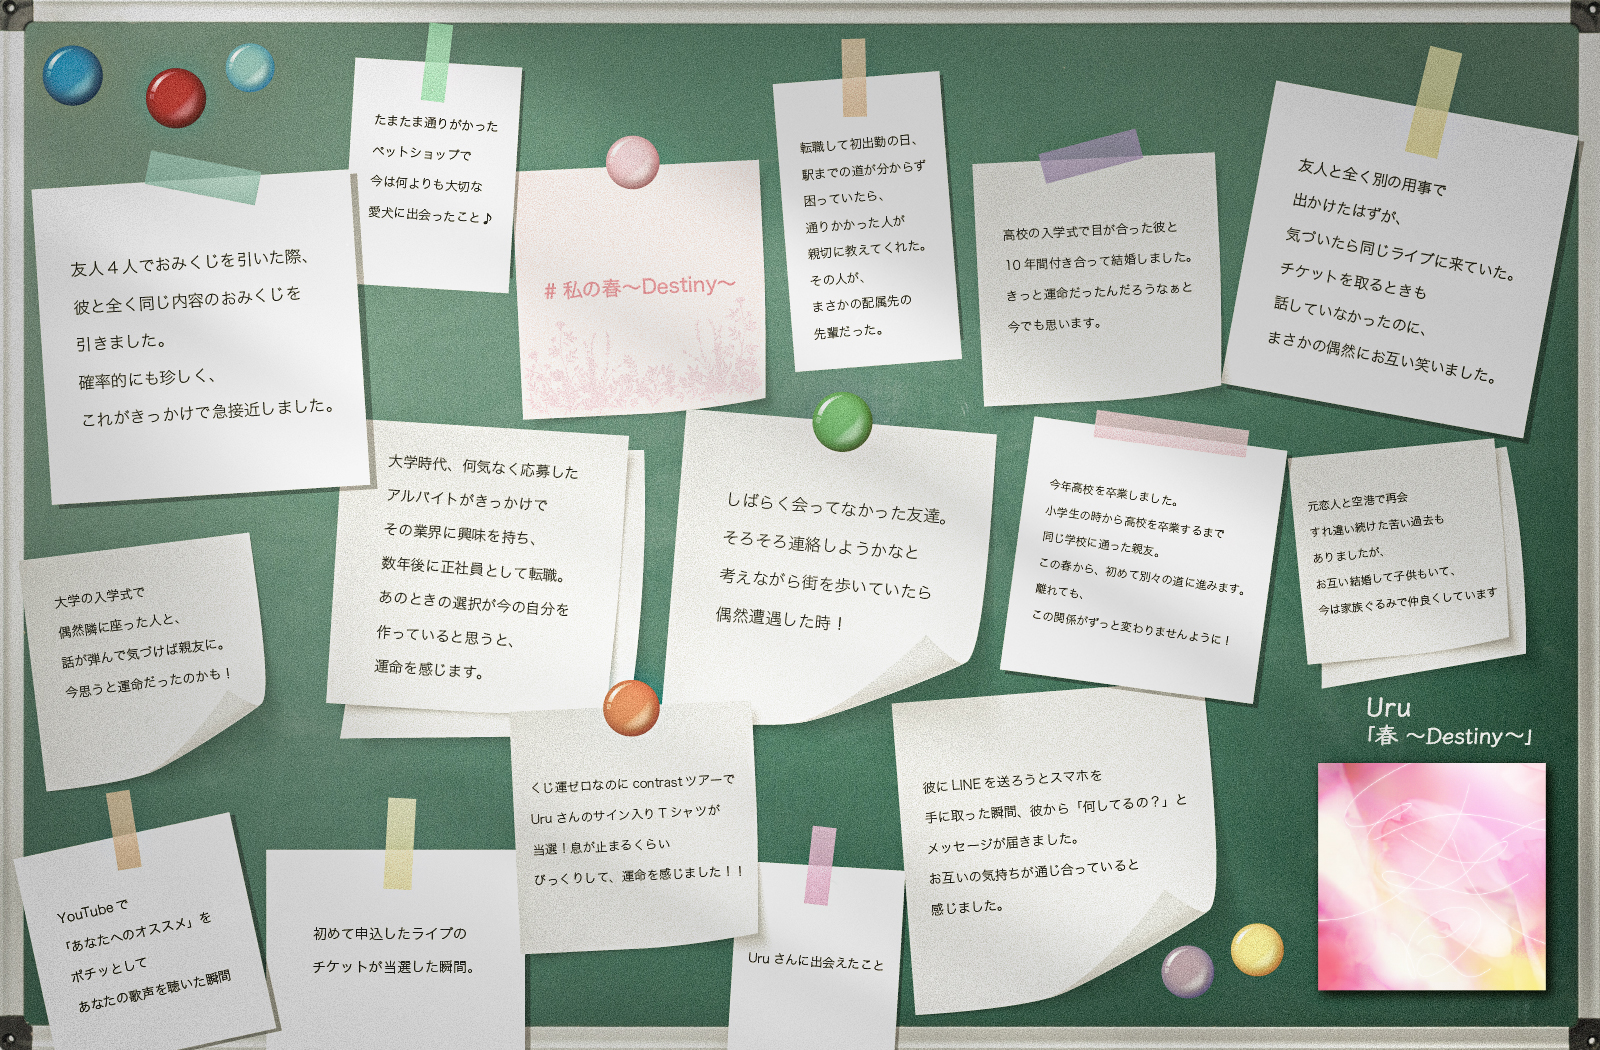 たまたま通りがかった
ペットショップで
今は何よりも大切な
愛犬に出会ったこと♪
友人４人でおみくじを引いた際、
彼と全く同じ内容のおみくじを
引きました。
確率的にも珍しく、
これがきっかけで急接近しました。
# 私の春〜Destiny〜
転職して初出勤の日、
駅までの道が分からず
困っていたら、
通りかかった人が
親切に教えてくれた。
その人が、
まさかの配属先の
先輩だった。
高校の入学式で目が合った彼と
10 年間付き合って結婚しました。
きっと運命だったんだろうなぁと
今でも思います。
友人と全く別の用事で
出かけたはずが、
気づいたら同じライブに来ていた。
チケットを取るときも
話していなかったのに、
まさかの偶然にお互い笑いました。
大学時代、何気なく応募した
アルバイトがきっかけで
その業界に興味を持ち、
数年後に正社員として転職。
あのときの選択が今の自分を
作っていると思うと、
運命を感じます。
しばらく会ってなかった友達。
そろそろ連絡しようかなと
考えながら街を歩いていたら
偶然遭遇した時！
今年高校を卒業しました。
小学生の時から高校を卒業するまで
同じ学校に通った親友。
この春から、初めて別々の道に進みます。
離れても、
この関係がずっと変わりませんように！
元恋人と空港で再会
すれ違い続けた苦い過去も
ありましたが、
お互い結婚して子供もいて、
今は家族ぐるみで仲良くしています
大学の入学式で
偶然隣に座った人と、
話が弾んで気づけば親友に。
今思うと運命だったのかも！
くじ運ゼロなのに contrast ツアーで
Uru さんのサイン入り T シャツが
当選！息が止まるくらい
びっくりして、運命を感じました！！
彼に LINE を送ろうとスマホを
手に取った瞬間、彼から「何してるの？」と
メッセージが届きました。
お互いの気持ちが通じ合っていると
感じました。
Uru
「春 〜Destiny〜」
YouTube で
「あなたへのオススメ」を
ポチッとして
あなたの歌声を聴いた瞬間
初めて申込したライブの
チケットが当選した瞬間。
Uru さんに出会えたこと